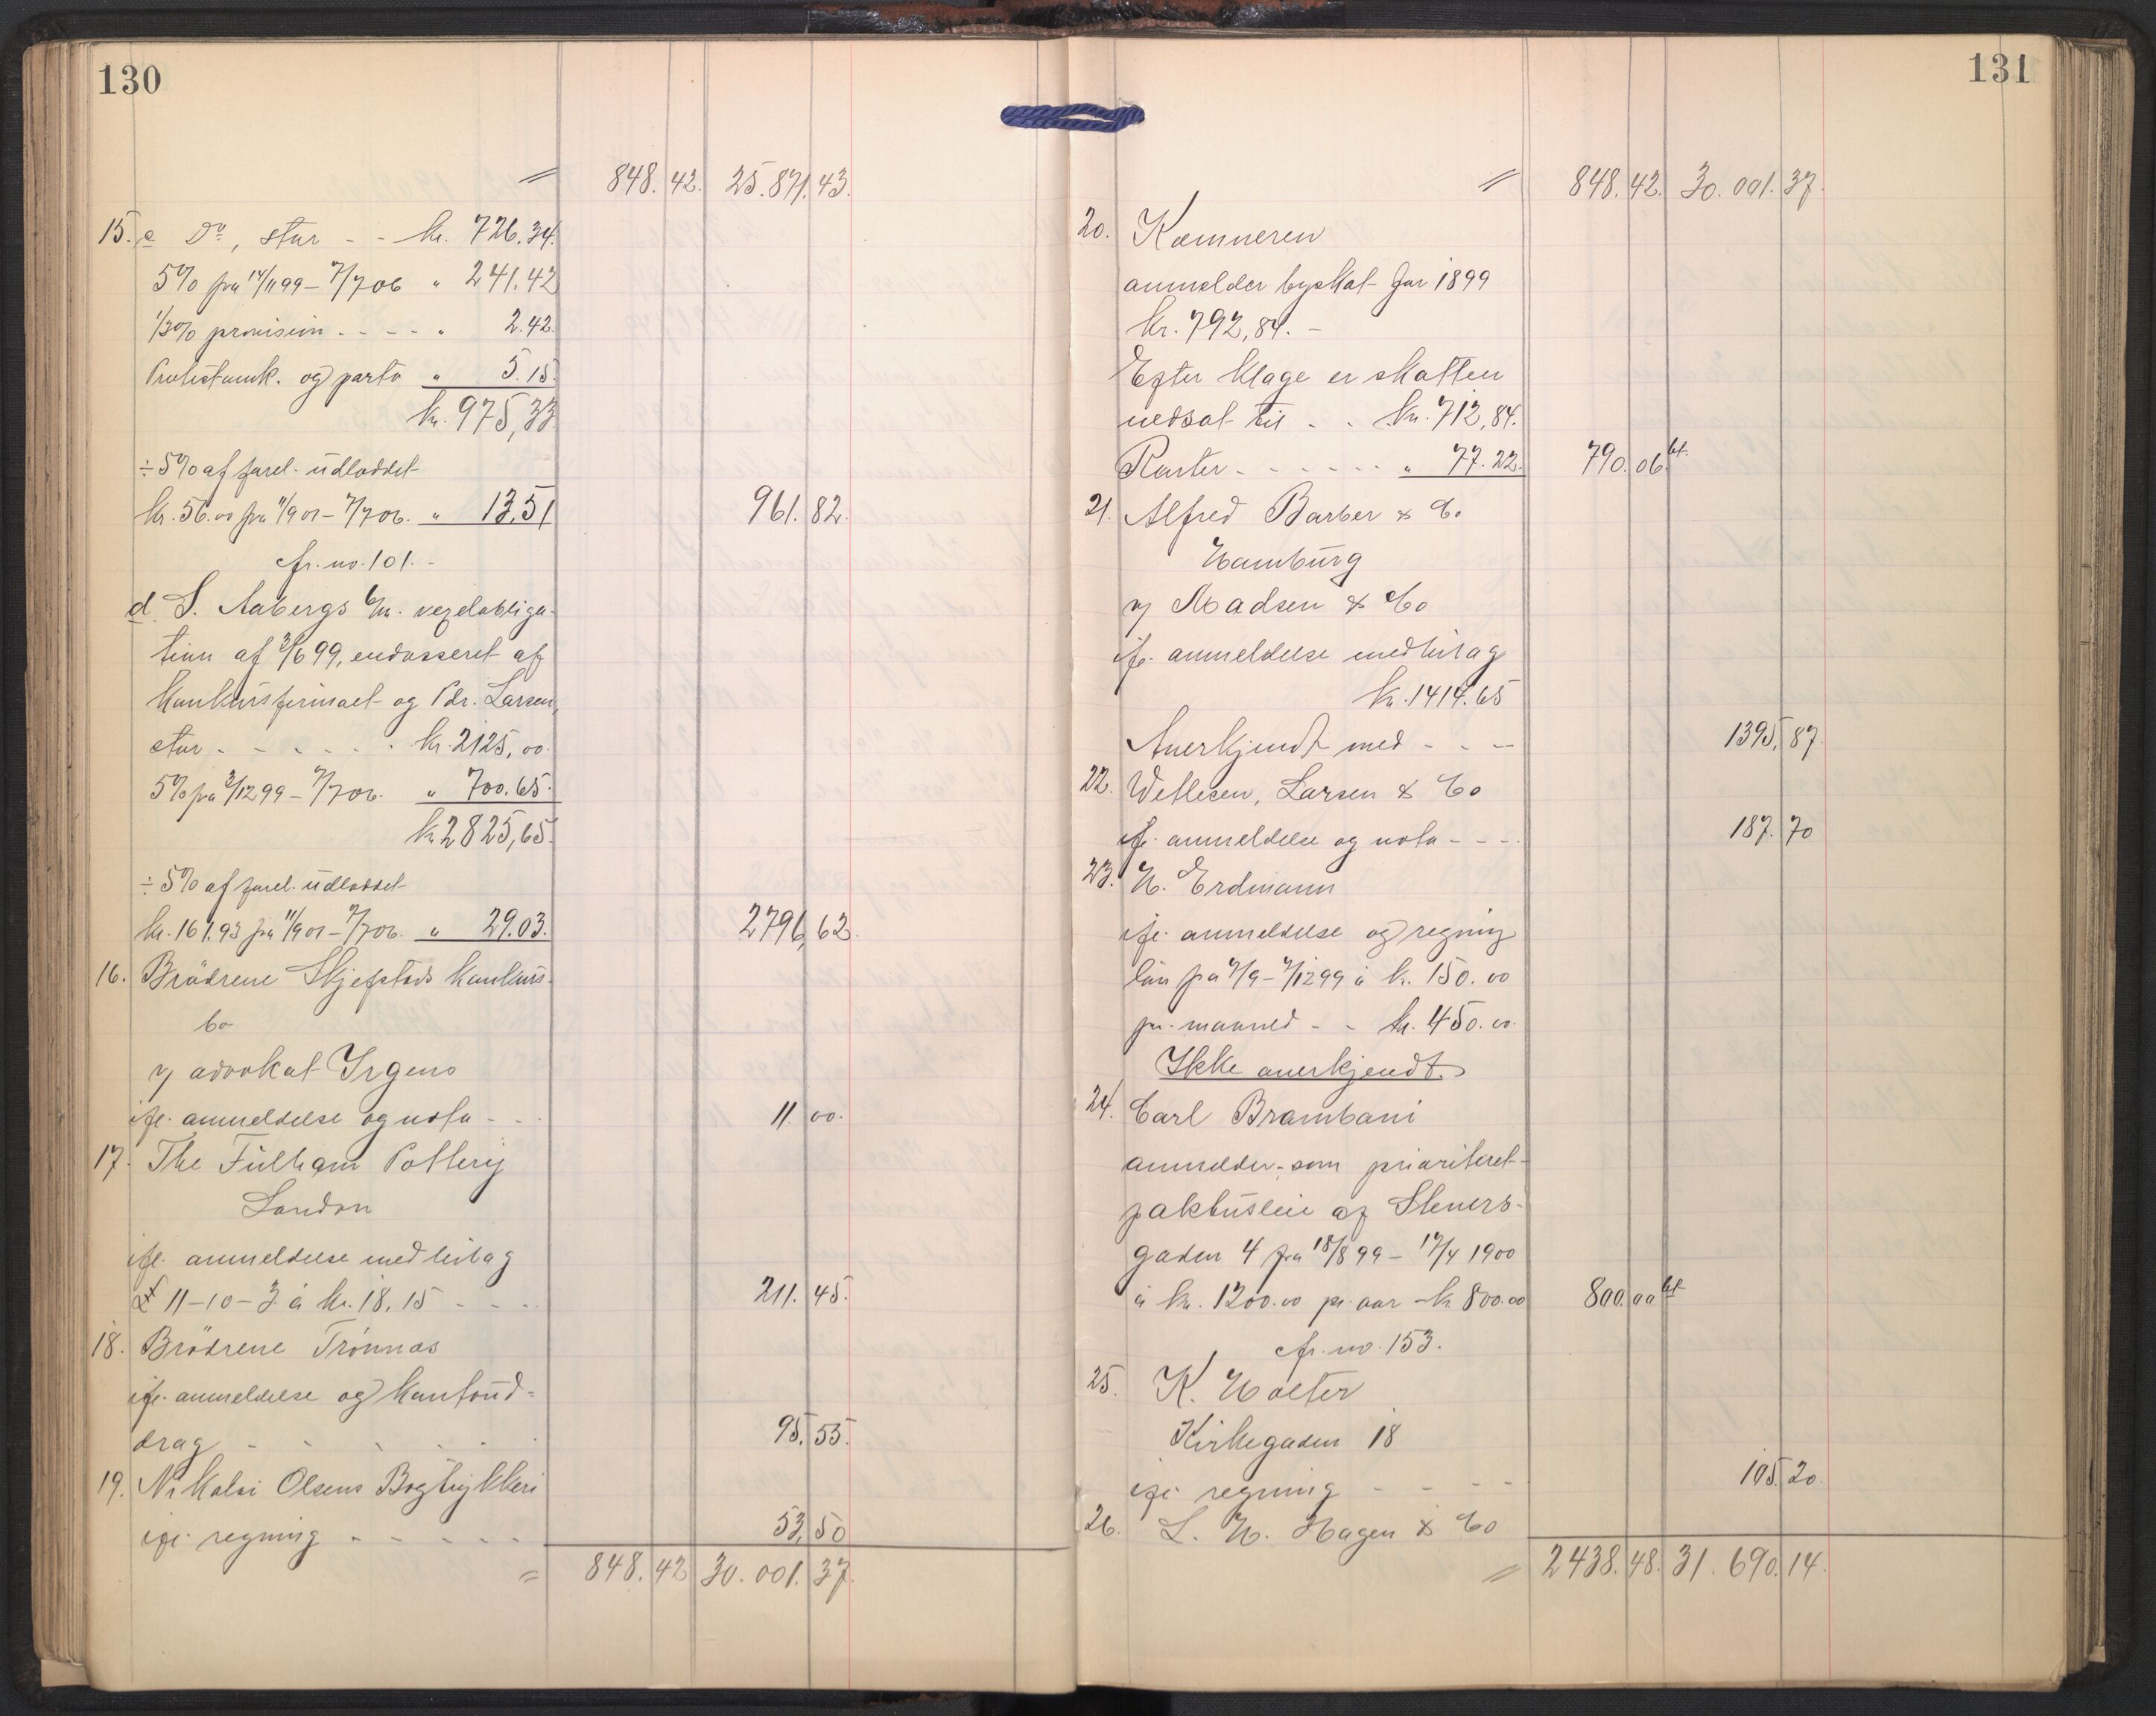 130
848.42. 25.871.43.
15. c Do, stor - - kr. 726.34.
5% fra 14/11 99 - 7/7 06 " 241.42
1/3% provision - - - - " 2.42.
Protestomk. og porto " 5.15.
kr. 975,33
÷ 5% af forel. udloddet
kr. 56.00 fra 11/9 01 - 7/7 06. " 13,51 961.82.
cfr. no. 101. -
d. S. Aabergs vexelobliga-
tion af 3/6 99, endosseret af
konkursfirmaet og Pdr. Larsen,
stor - - - - - - kr. 2125,00.
5% fra 3/12 99 - 7/7 06. " 700.65.
kr. 2825,65.
÷ 5% af forel. udloddet
kr. 161.93 fra 11/9 01 - 7/7 06. " 29.03. 2796,62.
16. Brödrene Skjefstads konkurs-
bo
v/ advokat Irgens
ifl. anmeldelse og nota - - 11.00.
17. The Fulham Pottery
London
ifl. anmeldelse med bilag
£ 11-10-3 à kr. 18,15 - - - 211.45.
18. Brödrene Trönnas
ifl. anmeldelse og kontoud-
drag - - - - - - 95.55.
19. Nikolai Olsens Bogtrykkeri
ifl. regning - - - - - 53,50
= 848.42 30.001.37.
131
848.42. 30.001.37.
20. Kæmneren
anmelder byskat for 1899
kr. 792,84. -
Efter klage er skatten
nedsat til - - kr. 712,84.
Renter - - - - - - " 77.22. 790.06.
21. Alfred Barber & Co
Hamburg
v/ Madsen & Co
ifl. anmeldelse med bilag
kr. 1414.65
Anerkjendt med - - - 1395,87.
22. Wetlesen, Larsen & Co
ifl. anmeldelse og nota - - - 187.70
23. H. Erdmann
ifl. anmeldelse og regning
lön fra 7/9 - 7/12 99 à kr. 150.00
pr. maaned - - kr. 450.00.
Ikke anerkjendt.
24. Carl Brambani
anmelder som prioriteret
pakhusleie af Steners-
gaden 4 fra 18/8 99 - 17/4 1900
à kr. 1200.00 pr. aar - kr. 800.00 800.00
cfr. no. 153.
25. K. Holter
Kirkegaden 18
ifl. regning - - - - 105.20.
26. L. H. Hagen & Co
= 2438.48. 31.690.14.